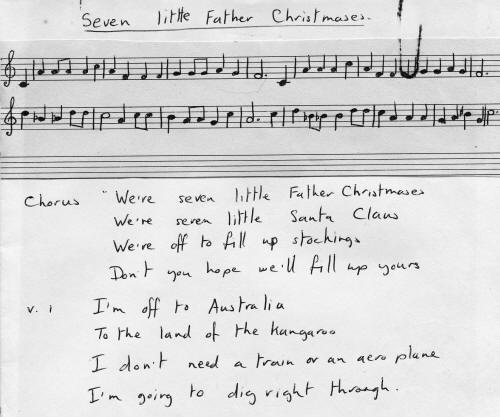 Seven little Father Christmases.
Chorus "We're seven little Father Christmases
We're seven little Santa Claus
We're off to fill up stockings
Don't you hope we'll fill up yours
v. 1 I'm off to Australia
To the land of the Kangaroo
I don't need a train or an aero plane
I'm going to dig right through.